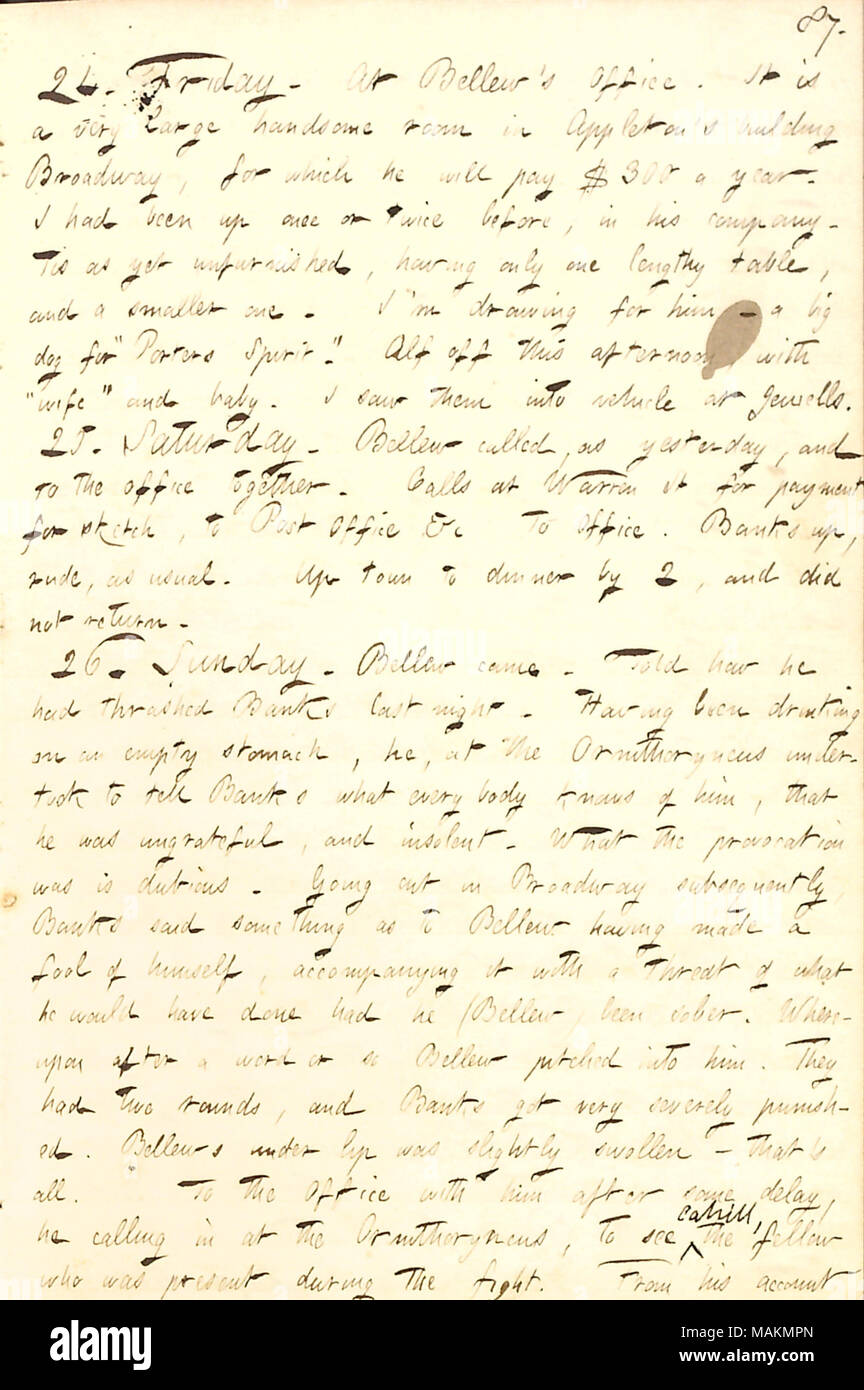 87.
24. Friday. At Bellew's Office. It is
a very large handsome room in Appleton's building
Broadway, for which he will pay $300 a year.
I had been up once or twice before, in his company.
Tis as yet unfurnished, having only one lengthy table,
and a smaller one. I'm drawing for him — a big
dog for "Porters Spirit." Alf off this afternoon, with
"wife" and baby. I saw them into vehicle at Jewells.
25. Saturday. Bellew called, as yesterday, and
to the office together. Calls at Warren St for payment
for sketch, to Post Office &c To Office. Banks up,
rude, as usual. Up town to dinner by 2, and did
not return.
26. Sunday. Bellew came. Told how he
had thrashed Banks last night. Having been drinking
on an empty stomach, he, at the Ornithoryncus under-
took to tell Banks what every body knows of him, that
he was ungrateful, and insolent. What the provocation
was is dubious. Going out in Broadway subsequently,
Banks said something as to Bellew having made a
fool of himself, accompanying it with a threat of what
he would have done had he (Bellew) been sober. Where-
upon after a word or so Bellew pitched into him. They
had two rounds, and Banks got very severely punish-
ed. Bellew's under lip was slightly swollen — that is
all. To the Office with him after some delay,
he calling in at the Ornithoryncus, to see Cahill, the fellow
who was present during the fight. From his account
alamy
Image ID: MAKMPN
www.alamy.com